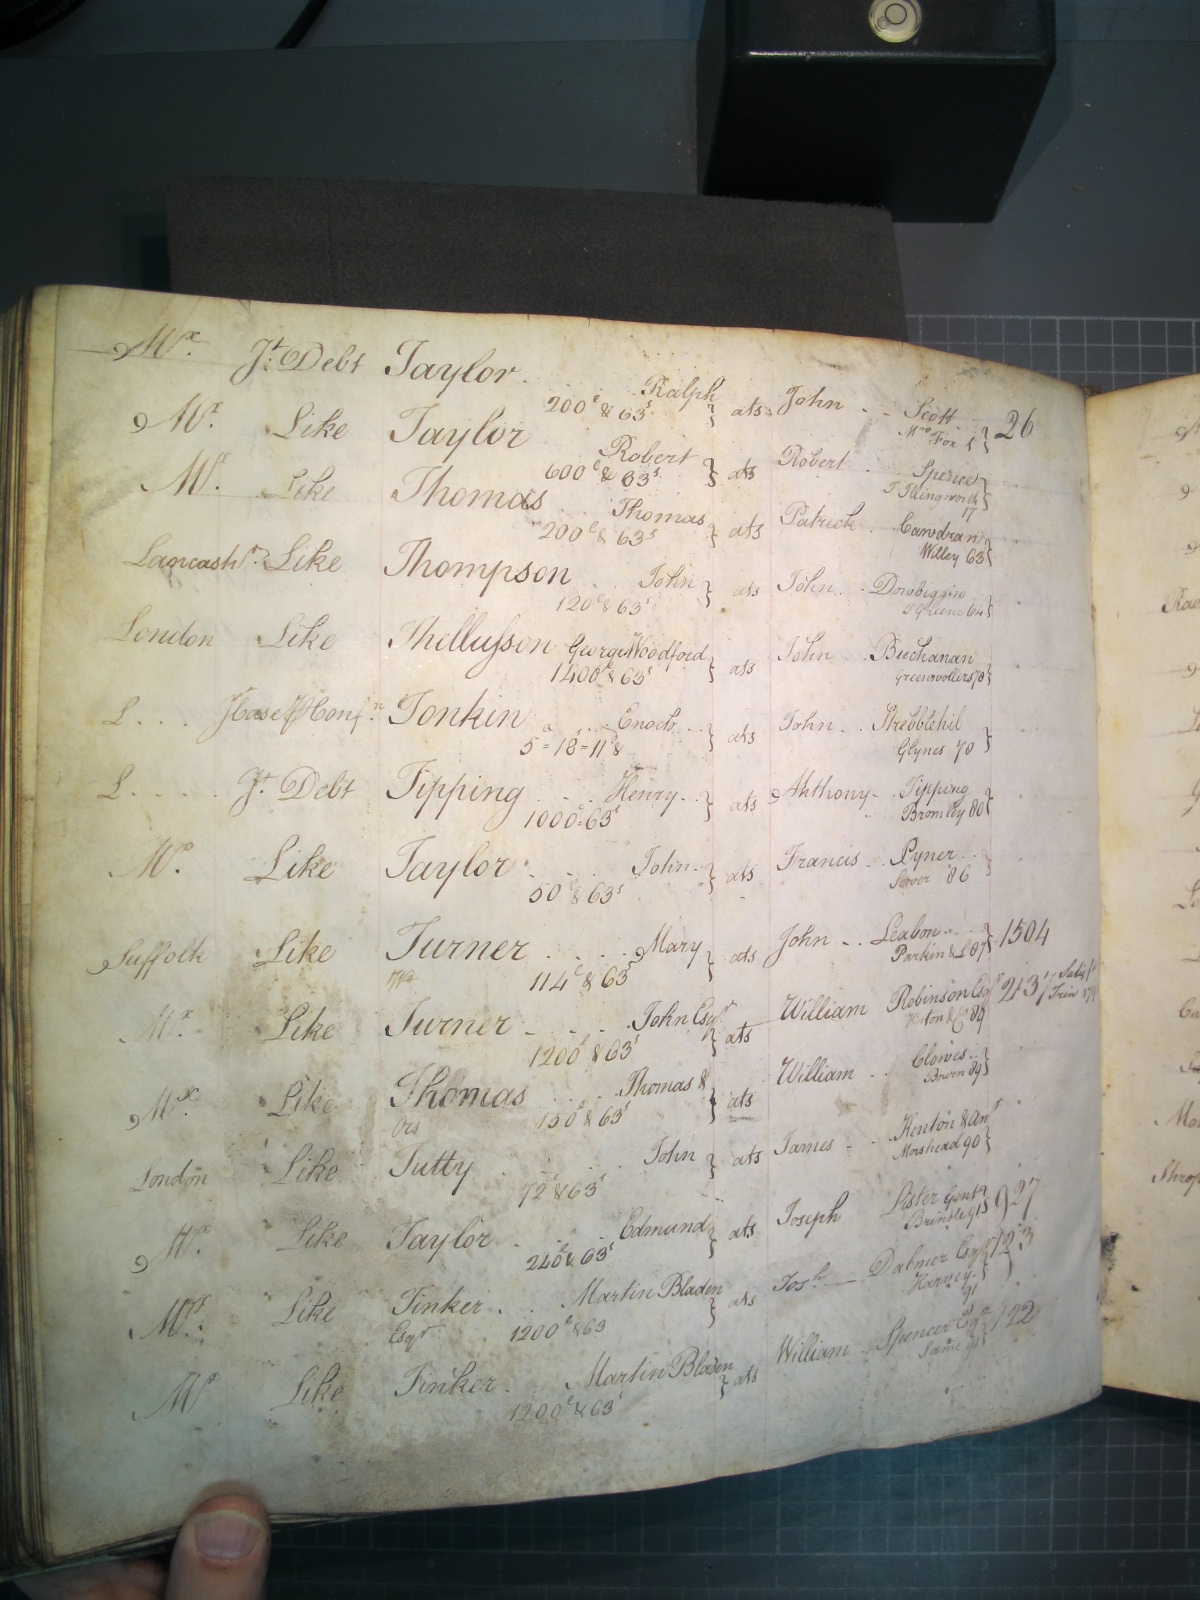 Mx. Jt. Debt Taylor . Ralph } ats John . . Scott
200£ & 63s Fox 5 } 26
Mx. Like Taylor Robert } ats Robert Spence
600£ & 63s T Illingworth 17
Mx. Like Thomas Thomas } ats Patrick . Cawdran
200£ & 63s Willey 63
Lancashr. Like Thompson . . John } ats John . . Dorobiggin
120£ & 63s Greene 64
London Like Thellusson George Woodford } ats John . . Buchanan
1400£ & 63s 70
L . . . Conf.n Tonkin . . . Enoch } ats John . . Strebblehil
5=18=11 & Glynes 70
L . . . . Jt. Debt Tipping . . . Henry } ats Anthony Tipping
1000 : 63s Bromley 80
Mx. Like Taylor . . . John } ats Francis . . Pyner
50£ & 63s 86
Suffolk Like Turner . . . . Mary } ats John . . Leabon . .
Wo 114£ & 63s Parkin & 87 } 1504
Mx. Like Turner . . . . John Esqr } ats William Robinson Esqr
1200£ & 63s & Co 89
Mx. Like Thomas . . . Thomas & } ats William . . Clowes
Ors 150£ & 63s Bown 89
London Like Tutty . . . John } ats James . . Kenton & Anr
72£ & 63s Morshead 90
Mx. Like Taylor . . . Edmund } ats Joseph Lister Gent
240£ & 63s Brimble 91 } 927
Mx. Like Tinker . . . Martin Bladen } ats Josh Dalmer Esqr
Esqr 1200£ & 63 Harvey 91 } 123
Mx Like Tinker . . Martin Bladen } ats William Spencer Esqr
1200£ & 63s Same 91 } 122